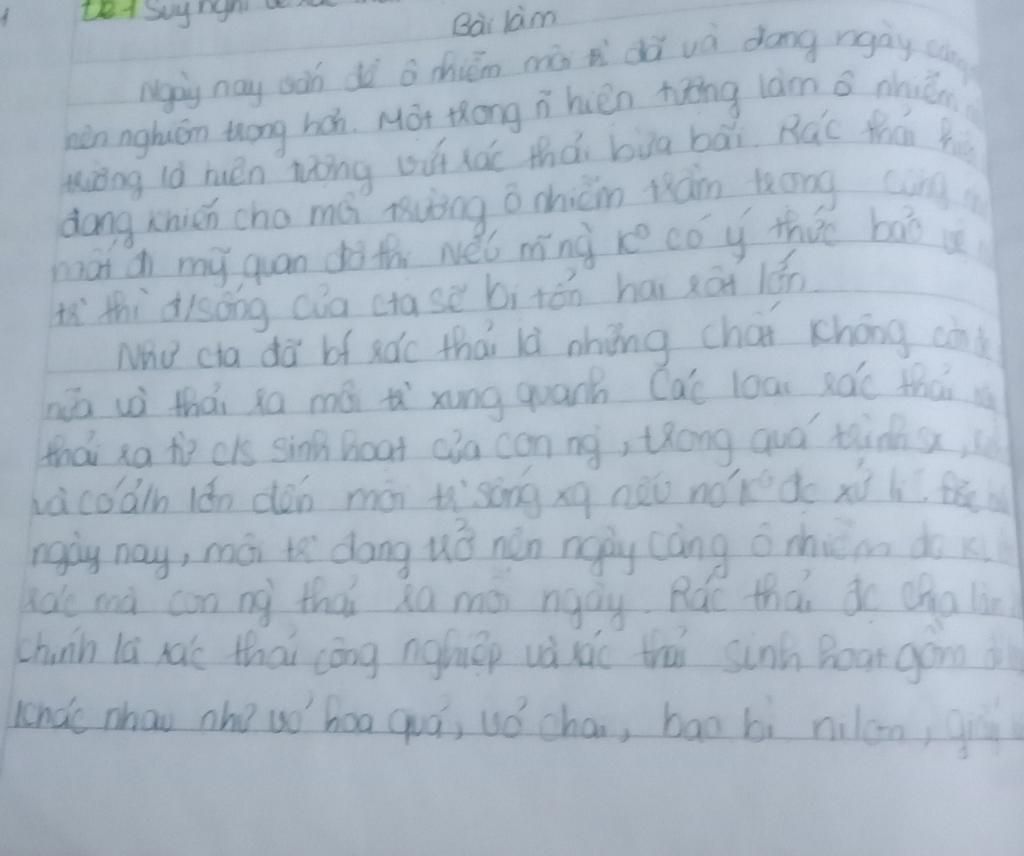 Đề 1 Suy nghĩ về
Bài làm
Ngày nay vấn đề ô nhiễm môi tr` đã và đang ngày càng
nên nghiêm trọng hơn. Một trong n~ hiện tượng làm ô nhiễm
trường là hiện tượng vứt rác thải bừa bãi. Rác thải
đang khiến cho môi trường ô nhiễm trầm trọng cũng
mất đi mỹ quan đô thị. Nếu mỗi ng k° có ý thức bảo vệ
tr` thì đ/sống của cta sẽ bị tổn hại rất lớn.
Như cta đã bt rác thải là những chất không còn
nữa và thải ra môi tr` xung quanh Các loại rác thải
thải ra từ c/s sinh hoạt của con ng`, trong quá trình sx,
và có a/h lớn đến môi tr` sống xq nếu nó k° đc xử lí.
ngày nay, môi tr` đang trở nên ngày càng ô nhiễm do
rác mà con ng` thải ra mỗi ngày. Rác thải đc chia làm
chính là rác thải công nghiệp và rác thải sinh hoạt gồm
khác nhau như vỏ hoa quả, vỏ chai, bao bì nilon, giấy